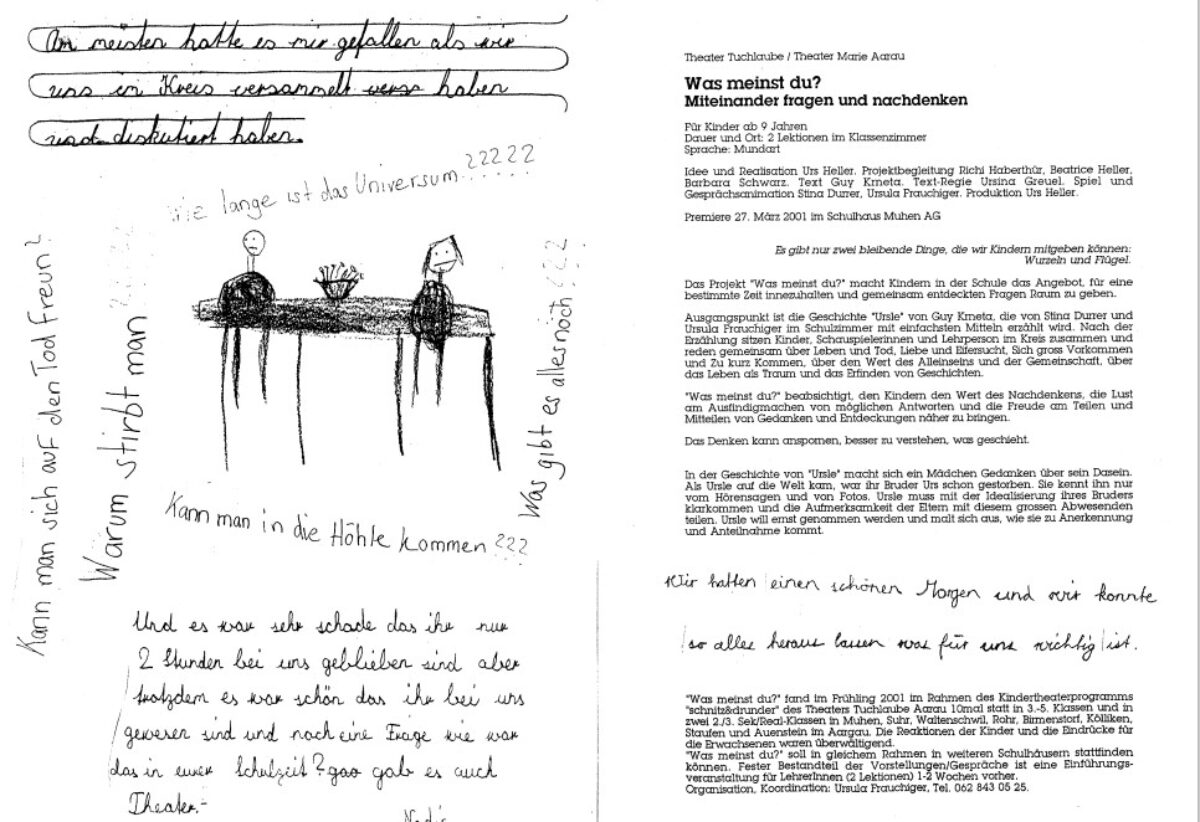 Am meisten hatte es mir gefallen als wir
uns in Kreis versammelt haben
und diskutiert haben.
Wie lange ist das Universum ?????
Kann man sich auf den Tod freun?
Warum stirbt man
Was gibt es alles noch ???
Kann man in die Höhle kommen ???
Und es war sehr schade das ihr nur
2 Stunden bei uns geblieben sind aber
trotzdem es war schön das ihr bei uns
gewesen sind und noch eine Frage wie war
das in eurer Schulzeit? gab es auch
Theater.-
Theater Tuchlaube / Theater Marie Aarau
Was meinst du?
Miteinander fragen und nachdenken
Für Kinder ab 9 Jahren
Dauer und Ort: 2 Lektionen im Klassenzimmer
Sprache: Mundart
Idee und Realisation Urs Heller. Projektbegleitung Richi Haberthür, Beatrice Heller,
Barbara Schwarz. Text Guy Krneta. Text-Regie Ursina Greuel. Spiel und
Gesprächsanimation Stina Durrer, Ursula Frauchiger. Produktion Urs Heller.
Premiere 27. März 2001 im Schulhaus Muhen AG
Es gibt nur zwei bleibende Dinge, die wir Kindern mitgeben können:
Wurzeln und Flügel.
Das Projekt "Was meinst du?" macht Kindern in der Schule das Angebot, für eine
bestimmte Zeit innezuhalten und gemeinsam entdeckten Fragen Raum zu geben.
Ausgangspunkt ist die Geschichte "Ursle" von Guy Krneta, die von Stina Durrer und
Ursula Frauchiger im Schulzimmer mit einfachsten Mitteln erzählt wird. Nach der
Erzählung sitzen Kinder, Schauspielerinnen und Lehrperson im Kreis zusammen und
reden gemeinsam über Leben und Tod, Liebe und Eifersucht, Sich gross Vorkommen
und Zu kurz Kommen, über den Wert des Alleinseins und der Gemeinschaft, über
das Leben als Traum und das Erfinden von Geschichten.
"Was meinst du?" beabsichtigt, den Kindern den Wert des Nachdenkens, die Lust
am Ausfindigmachen von möglichen Antworten und die Freude am Teilen und
Mitteilen von Gedanken und Entdeckungen näher zu bringen.
Das Denken kann anspornen, besser zu verstehen, was geschieht.
In der Geschichte von "Ursle" macht sich ein Mädchen Gedanken über sein Dasein.
Als Ursle auf die Welt kam, war ihr Bruder Urs schon gestorben. Sie kennt ihn nur
vom Hörensagen und von Fotos. Ursle muss mit der Idealisierung ihres Bruders
klarkommen und die Aufmerksamkeit der Eltern mit diesem grossen Abwesenden
teilen. Ursle will ernst genommen werden und malt sich aus, wie sie zu Anerkennung
und Anteilnahme kommt.
Wir hatten einen schönen Morgen und wir konnte
so alles heraus lassen was für uns wichtig ist.
"Was meinst du?" fand im Frühling 2001 im Rahmen des Kindertheaterprogramms
"schnitz&drunder" des Theaters Tuchlaube Aarau 10mal statt in 3.-5. Klassen und in
zwei 2./3. Sek/Real-Klassen in Muhen, Suhr, Waltenschwil, Rohr, Birmenstorf, Kölliken,
Staufen und Auenstein im Aargau. Die Reaktionen der Kinder und die Eindrücke für
die Erwachsenen waren überwältigend.
"Was meinst du?" soll in gleichem Rahmen in weiteren Schulhäusern stattfinden
können. Fester Bestandteil der Vorstellungen/Gespräche ist eine Einführungs-
veranstaltung für LehrerInnen (2 Lektionen) 1-2 Wochen vorher.
Organisation, Koordination: Ursula Frauchiger, Tel. 062 843 05 25.